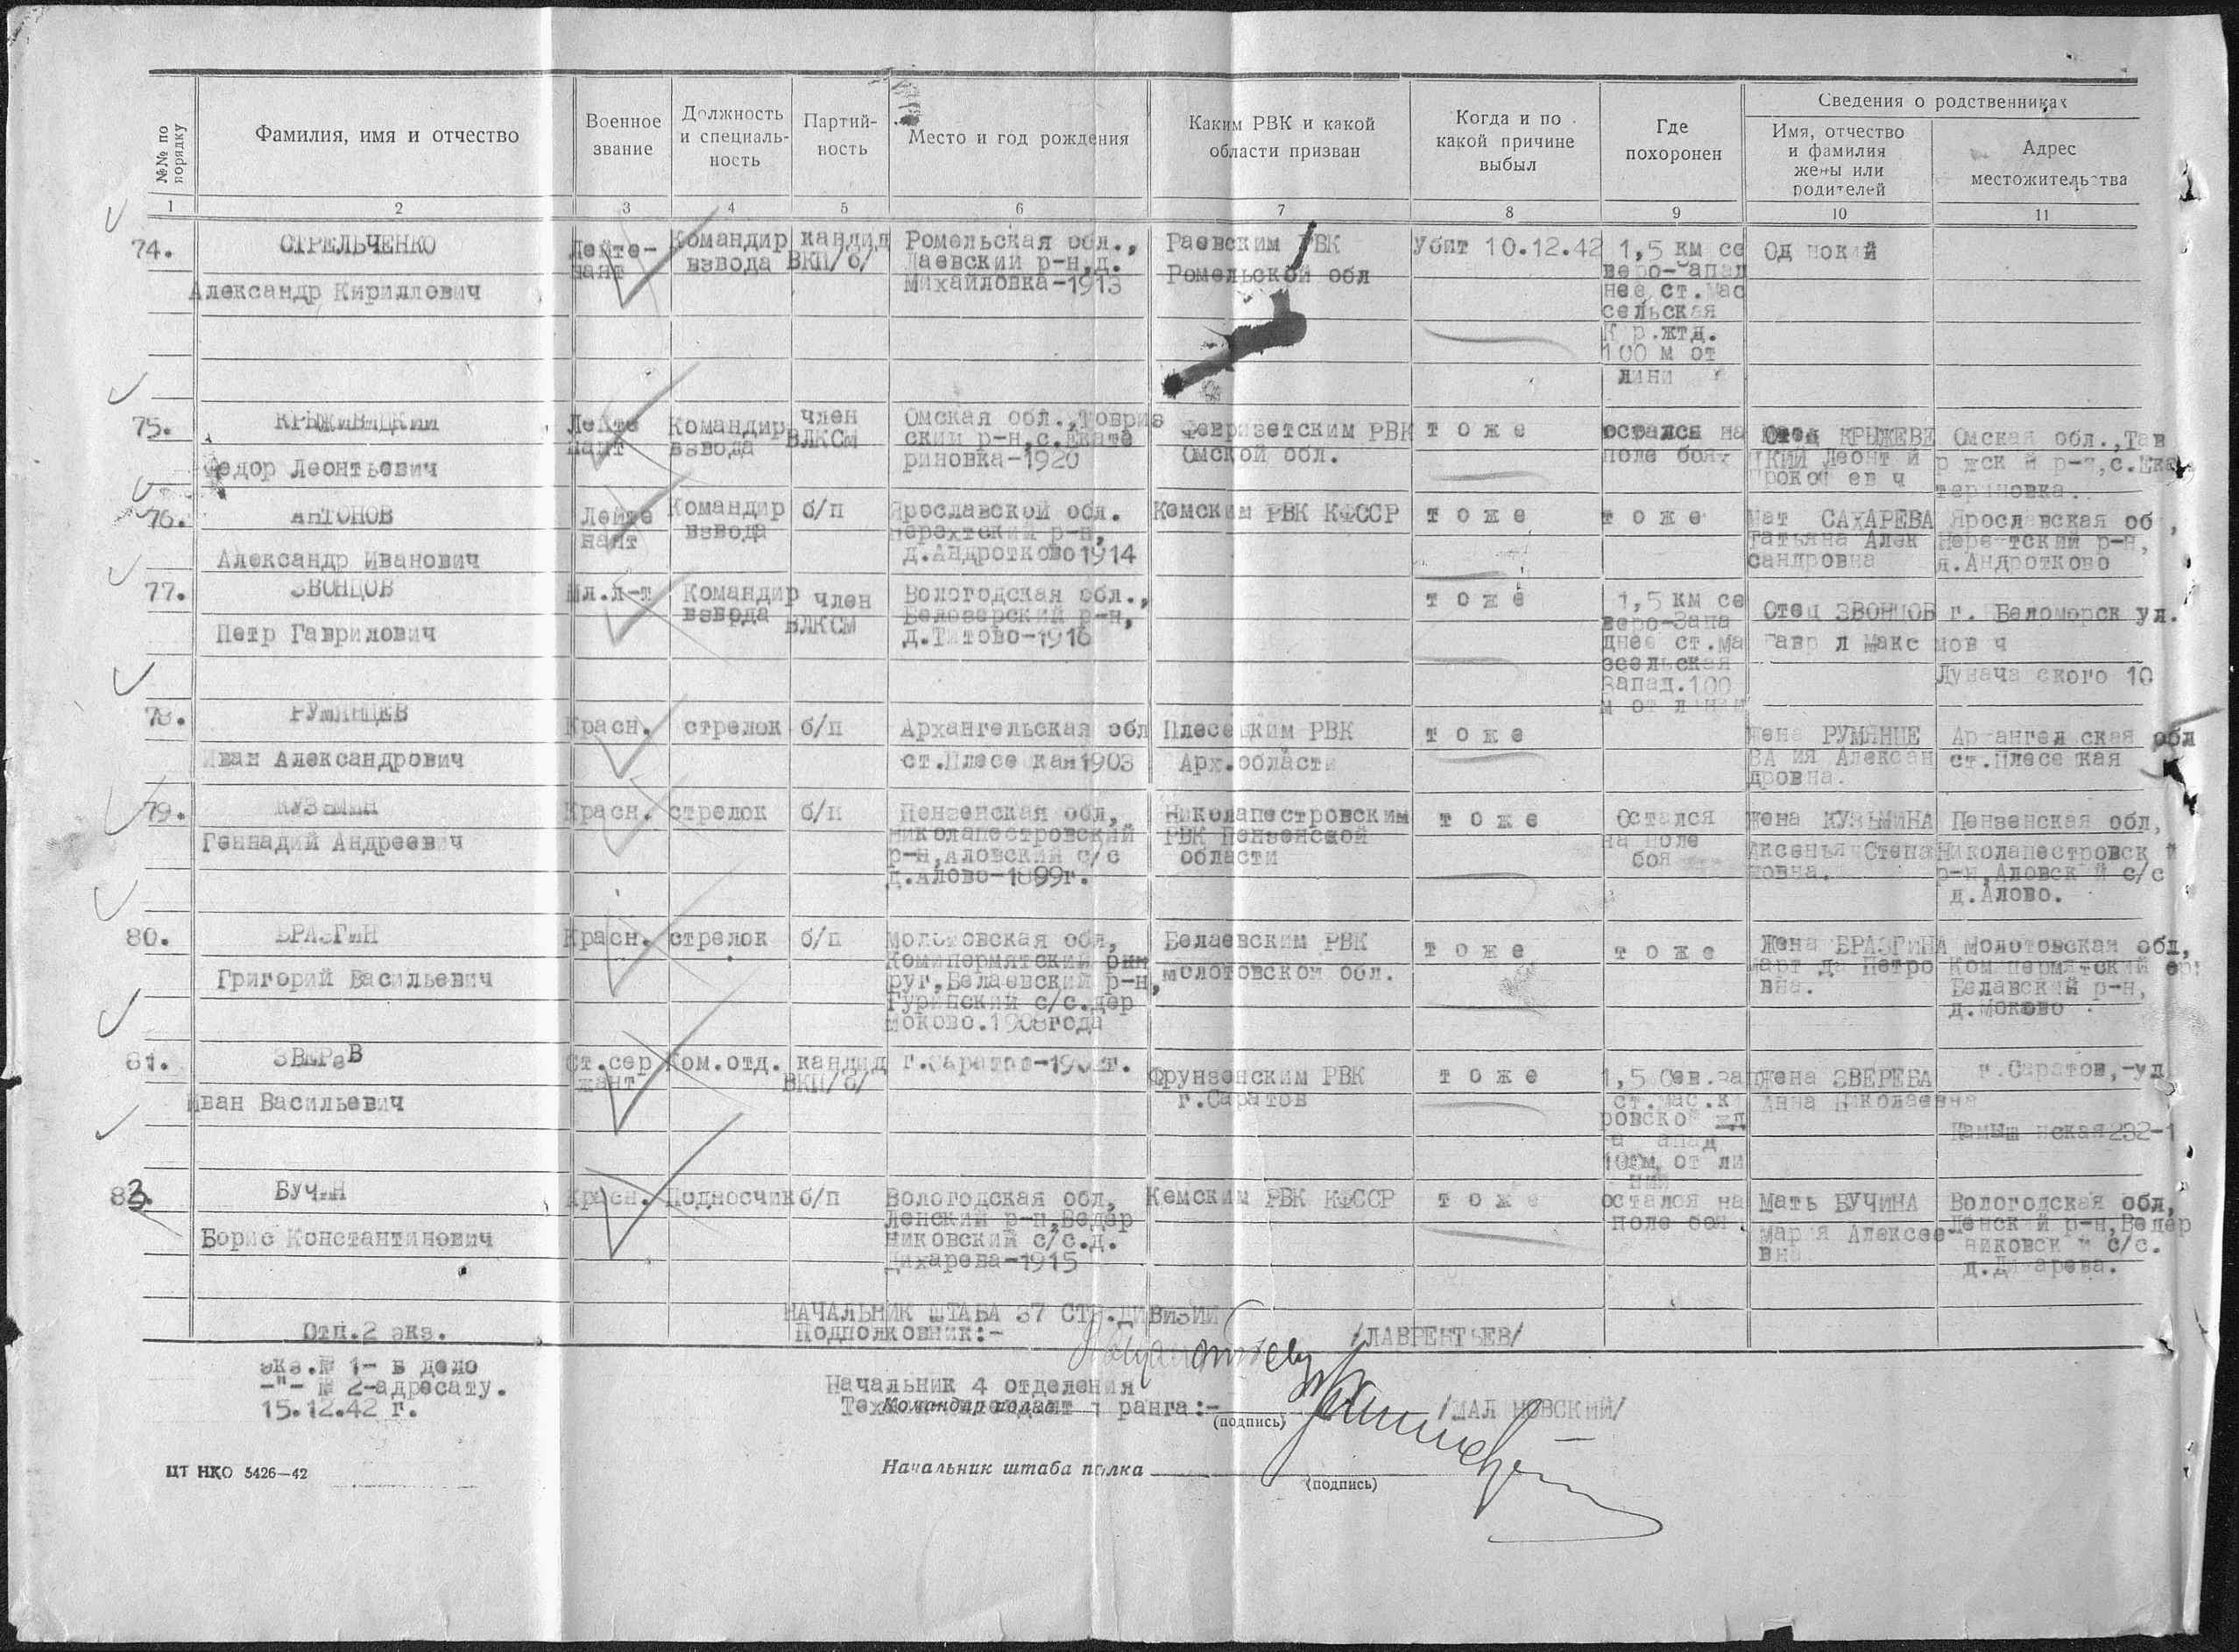 №№ по порядку
Фамилия, имя и отчество
Военное звание
Должность и специаль-ность
Партий-ность
Место и год рождения
Каким РВК и какой области призван
Когда и по какой причине выбыл
Где похоронен
Сведения о родственниках
Имя, отчество и фамилия жены или родителей
Адрес местожительства
1 2 3 4 5 6 7 8 9 10 11
74.
СТРЕЛЬЧЕНКО
Александр Кириллович
Лейте-
нант
Командир
взвода
кандид
ВКП/б/
Ромельская обл.,
Лаевский р-н,д.
Михайловка-1913
Раевским РВК
Ромельской обл
Убит 10.12.42
1,5 км се
веро-запад
нее ст.Мас
сельская
К р.жтд.
100 м от
лини
Од нокий
75.
КРЫЖЕВИЦКИЙ
Федор Леонтьевич
Лейте
нант
Командир
взвода
член
ВЛКСМ
Омская обл.,Товриз
ский р-н,с.Екате
риновка-1920
Февризетским РВК
Омской обл.
т о ж е
остался на
поле боя
Отец КРЫЖЕВИ
ЦКИЙ Леонт й
Проко ев ч
Омская обл.,Тав
р жск й р-н,с.Ека
териновка.
76.
АНТОНОВ
Александр Иванович
Лейте
нант
Командир
взвода
б/п
Ярославской обл.
Нерехтский р-н,
д.Андротково1914
Кемским РВК КФССР
т о ж е
т о ж е
Мат САХАРЕВА
Татьяна Алек
сандровна
Ярославская об ,
Нерехтский р-н,
д.Андротково
77.
ЗВОНЦОВ
Петр Гаврилович
Мл.л-т
Командир
взвода
член
ВЛКСМ
Вологодская обл.,
Белозерский р-н,
д.Титово-1916
т о ж е
1,5 км се
веро-Запа
днее ст.Ма
зсельская
Запад.100
м от линии
Отец ЗВОНЦОВ
Гавр л Макс мов ч
г. Беломорск ул.
Луначa ского 10
78.
РУМЯНЦЕВ
Иван Александрович
Красн.
стрелок
б/п
Архангельская обл
ст.Плесе кая1903
Плесецким РВК
Арх.области
т о ж е
Жена РУМЯНЦЕ
ВА ия Алексан
дровна.
Архангел ская обл
ст.Плесе кая
79.
КУЗЬМИН
Геннадий Андреевич
Красн.
стрелок
б/п
Пензенская обл,
Николапестровский
р-н,Аловский с/с
д.Алово-1899г.
Николапестровским
РВК Пензенской
области
т о ж е
Остался
на поле
боя
Жена КУЗЬМИНА
Аксенья Степа
новна.
Пензенская обл,
Николапестровск й
р-н,Аловск й с/с
д.Алово.
80.
БРАЗГИН
Григорий Васильевич
Красн.
стрелок
б/п
Молотовская обл,
Комипермятский
руг,Белаевский р-н,
Гуринский с/с.дер
Моково.1908года
Белаевским РВК
Молотовской обл.
т о ж е
т о ж е
Жена БРАЗГИНА
Март да Петро
вна.
Молотовская обл,
Ком пермятский
Белавский р-н,
д.Моково
81.
ЗВЕРеВ
Иван Васильевич
Ст.сер
жант
Ком.отд.
кандид
ВКП/б/
г.Саратов-190 г.
Фрунзенским РВК
г.Саратов
т о ж е
1,5 Сев.зап
ст.Мас.Ки
ровско жд
100м от ли
нии
Жена ЗВЕРЕВА
Анна Николаевна
г.Саратов,-ул
Камыш нская232-1
83.
БУЧИН
Борис Константинович
Красн.
Подносчик
б/п
Вологодская обл,
Ленский р-н,Ведер
никовский с/с.д.
Дихарева-1915
Кемским РВК КФССР
т о ж е
остался на
поле боя.
Мать БУЧИНА
Мария Алексее
вна
Вологодская обл,
Ленский р-н,Ведер
никовск й с/с.
д.Ди арева.
НАЧАЛЬНИК ШТАБА 37 СТР.ДИВИЗИИ
Подполковник:-
/ЛАВРЕНТЬЕВ/
Отп.2 экз.
экз.№ 1- в дело
-"- № 2-адресату.
15.12.42 г.
Начальник 4 отделения
Командир полка
ранга:-
(подпись)
/МАЛ НОВСКИЙ/
Начальник штаба полка
(подпись)
ЦТ НКО 5426—42